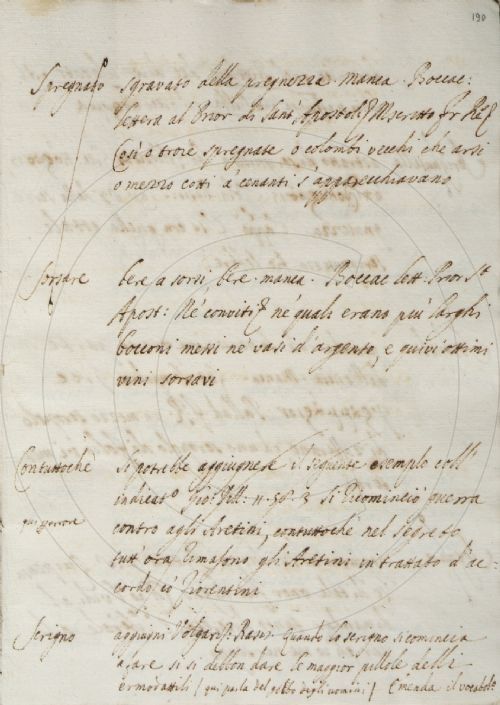 190
Spregnato sgravato della pregnezza. manca. Boccac:
lettera al Prior di Sant' Apostoli
Così o troie spregnate o colombi vecchi che arsi
o mezzo cotti a' cenanti s'apparecchiavano
Sorsare bere a sorsi bere. manca. Boccac lett. Prior St
Apost: Né conviti né quali erano più larghi
bocconi messi né vasi d'argento, e quivi ottimi
vini sorsavi
Contuttochè si potrebbe aggiugnere il seguente esempio coll'
indicato Gio: Vill: 11. 58. 3 si ricominciò guerra
contro agli Aretini, contuttochè nel segreto
tutt' ora rimasono gli Aretini in trattato d'ac=
cordo co' Fiorentini
Serigno aggiugni Volgariz. Rasis. Quando lo serigno si comincia
a fare si si debbon dare le maggior pillole delli
ermodattili (qui parla del gobbo degli uomini) emenda il vocabol